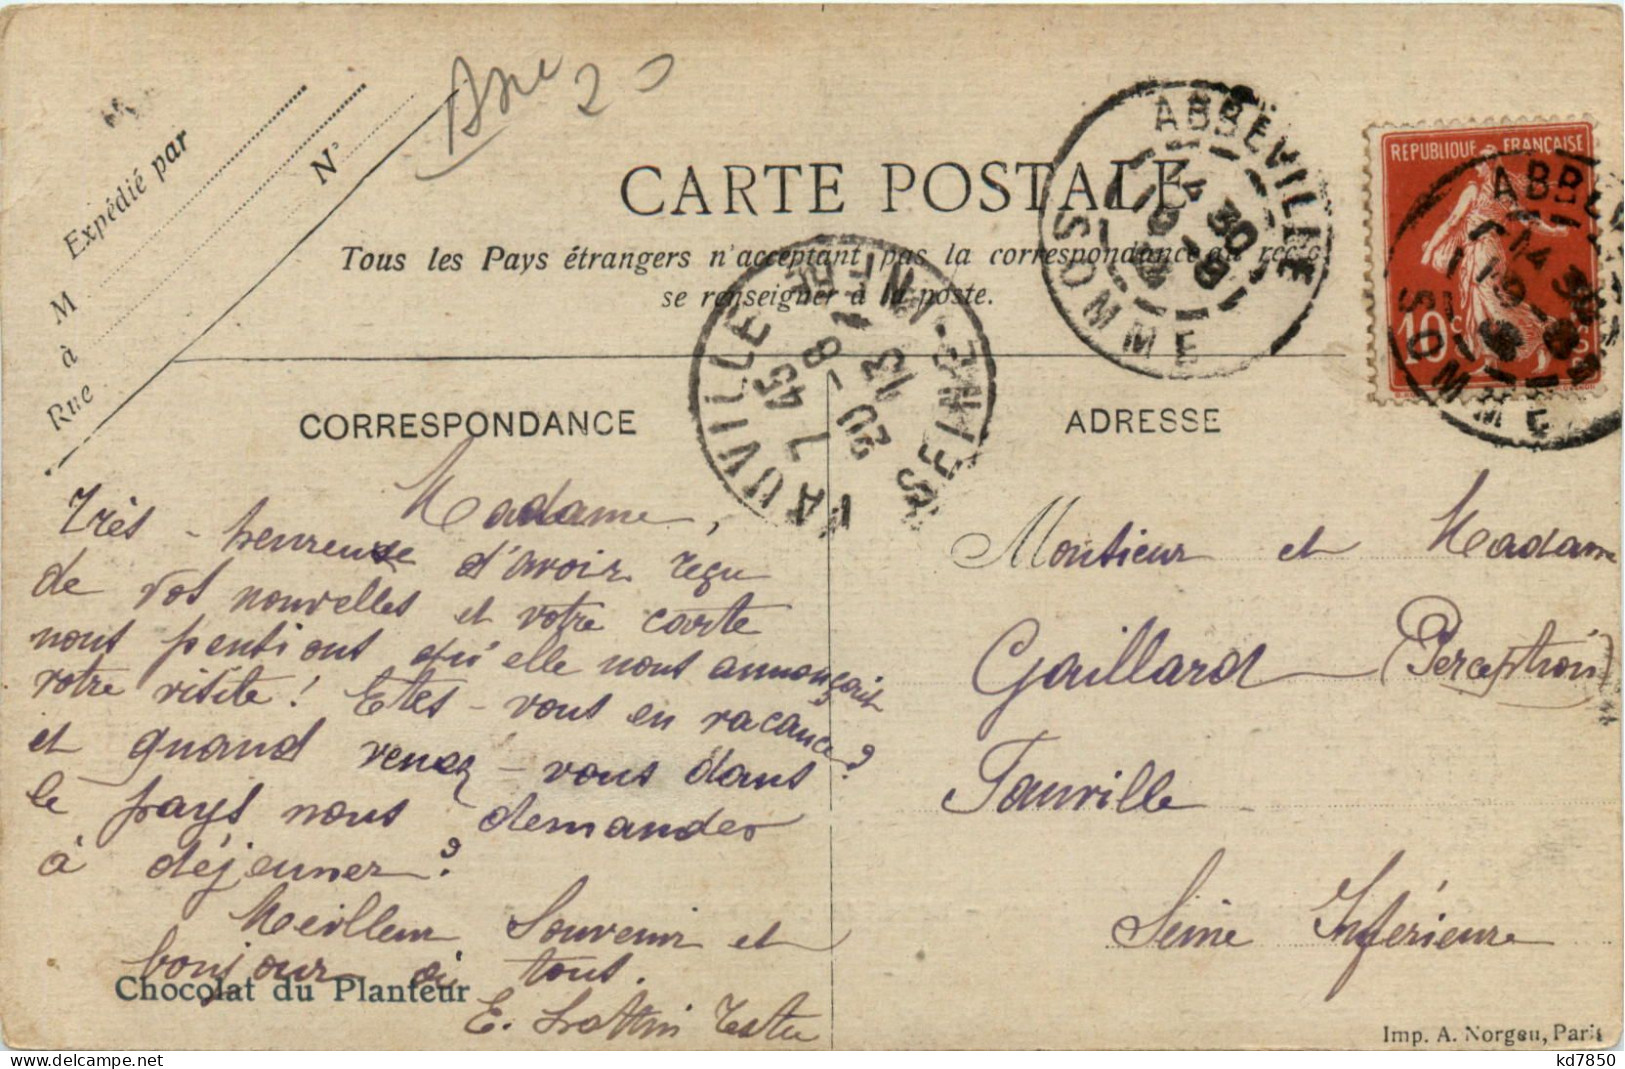 Anc 20
Expédié par
M
à
Rue
N°
CARTE POSTALE
Tous les Pays étrangers n'acceptant pas la correspondance au recto
se renseigner à la poste.
ABBEVILLE
14 30
19 - 8
SOMME
REPUBLIQUE FRANÇAISE
10c
ABBEVILLE
14 30
19 - 8
SOMME
FAUVILLE
7 45
20 - 8
13
SEINE-INFRE
CORRESPONDANCE
ADRESSE
Madame,
Très - heureuse d'avoir reçu
de vos nouvelles et votre carte
nous pensions qu'elle nous annonçait
votre visite! Etes - vous en vacance?
et quand venez - vous dans
le pays nous demander
à déjeuner?
Meilleur Souvenir et
bonjour à tous.
E. Testu
Monsieur et Madame
Gaillard (Perception)
Fauville
Seine Inférieure
Chocolat du Planteur
Imp. A. Norgeu, Paris
kd7850
delcampe.net